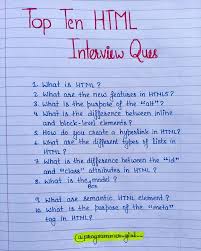 Top Ten HTML
Interview Ques
1. What is HTML?
2. What are the new features in HTML5?
3. What is the purpose of the "alt"?
4. What is the difference between inline
and block-level elements?
5. How do you create a hyperlink in HTML?
6. What are the different types of lists in
HTML?
7. What is the difference between the "id"
and "class" attributes in HTML?
8. What is the Box model?
9. What are semantic HTML element?
10. What is the purpose of the "meta"
tag in HTML?